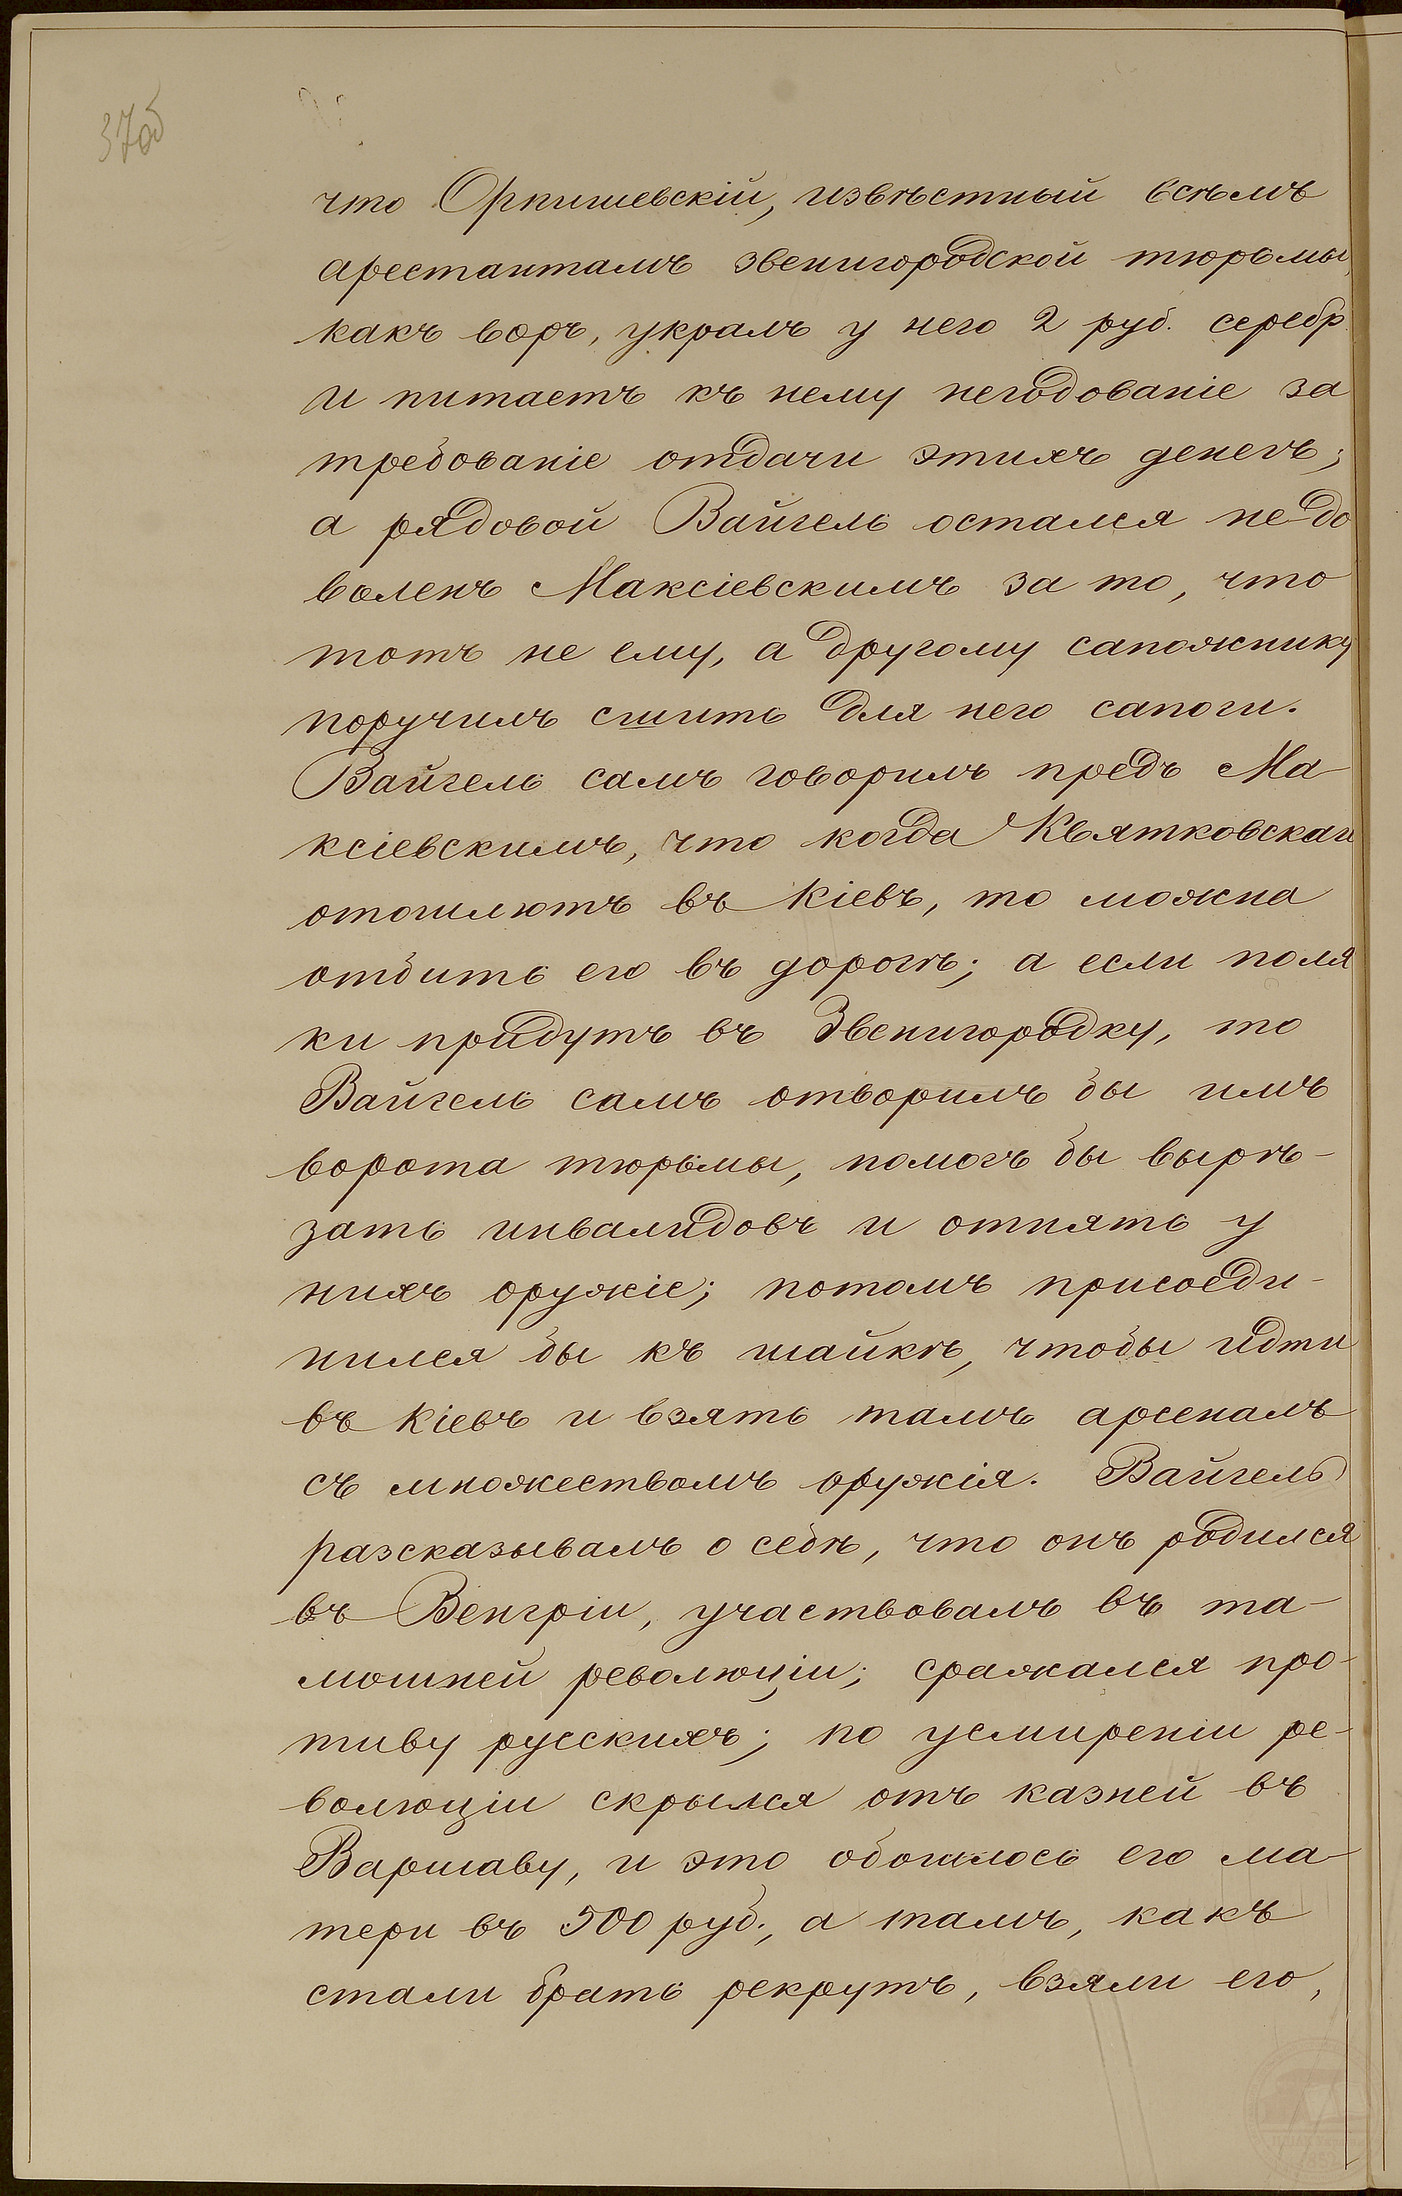 37об
что Орпишевскій, извѣстный всѣмъ
арестантамъ звенигородской тюрьмы
какъ воръ, укралъ у него 2 руб. серебр.
и питаетъ къ нему негодованіе за
требованіе отдачи этихъ денегъ;
а рядовой Вайгель остался не до
воленъ Максіевскимъ за то, что
тотъ не ему, а другому сапожнику
поручилъ сшить для него сапоги.
Вайгель самъ говорилъ предъ Ма-
ксіевскимъ, что когда Квятковскаго
отошлютъ въ Кіевъ, то можна
отбить его въ дорогѣ; а если поля
ки прiйдутъ въ Звенигородку, то
Вайгель самъ отворилъ бы имъ
ворота тюрьмы, помогъ бы вырѣ-
зать инвалидовъ и отнять у
нихъ оружіе; потомъ присоеди-
нился бы къ шайкѣ, чтобы идти
въ Кіевъ и взять тамъ арсеналъ
съ множествомъ оружія. Вайгель
разсказывалъ о себѣ, что онъ родился
въ Венгріи, участвовалъ въ та-
мошней революціи; сражался про-
тиву русскихъ; по усмиреніи ре-
волюціи скрылся отъ казней въ
Варшаву, и это обошлось его ма-
тери въ 500 руб., а тамъ, какъ
стали брать рекрутъ, взяли его,